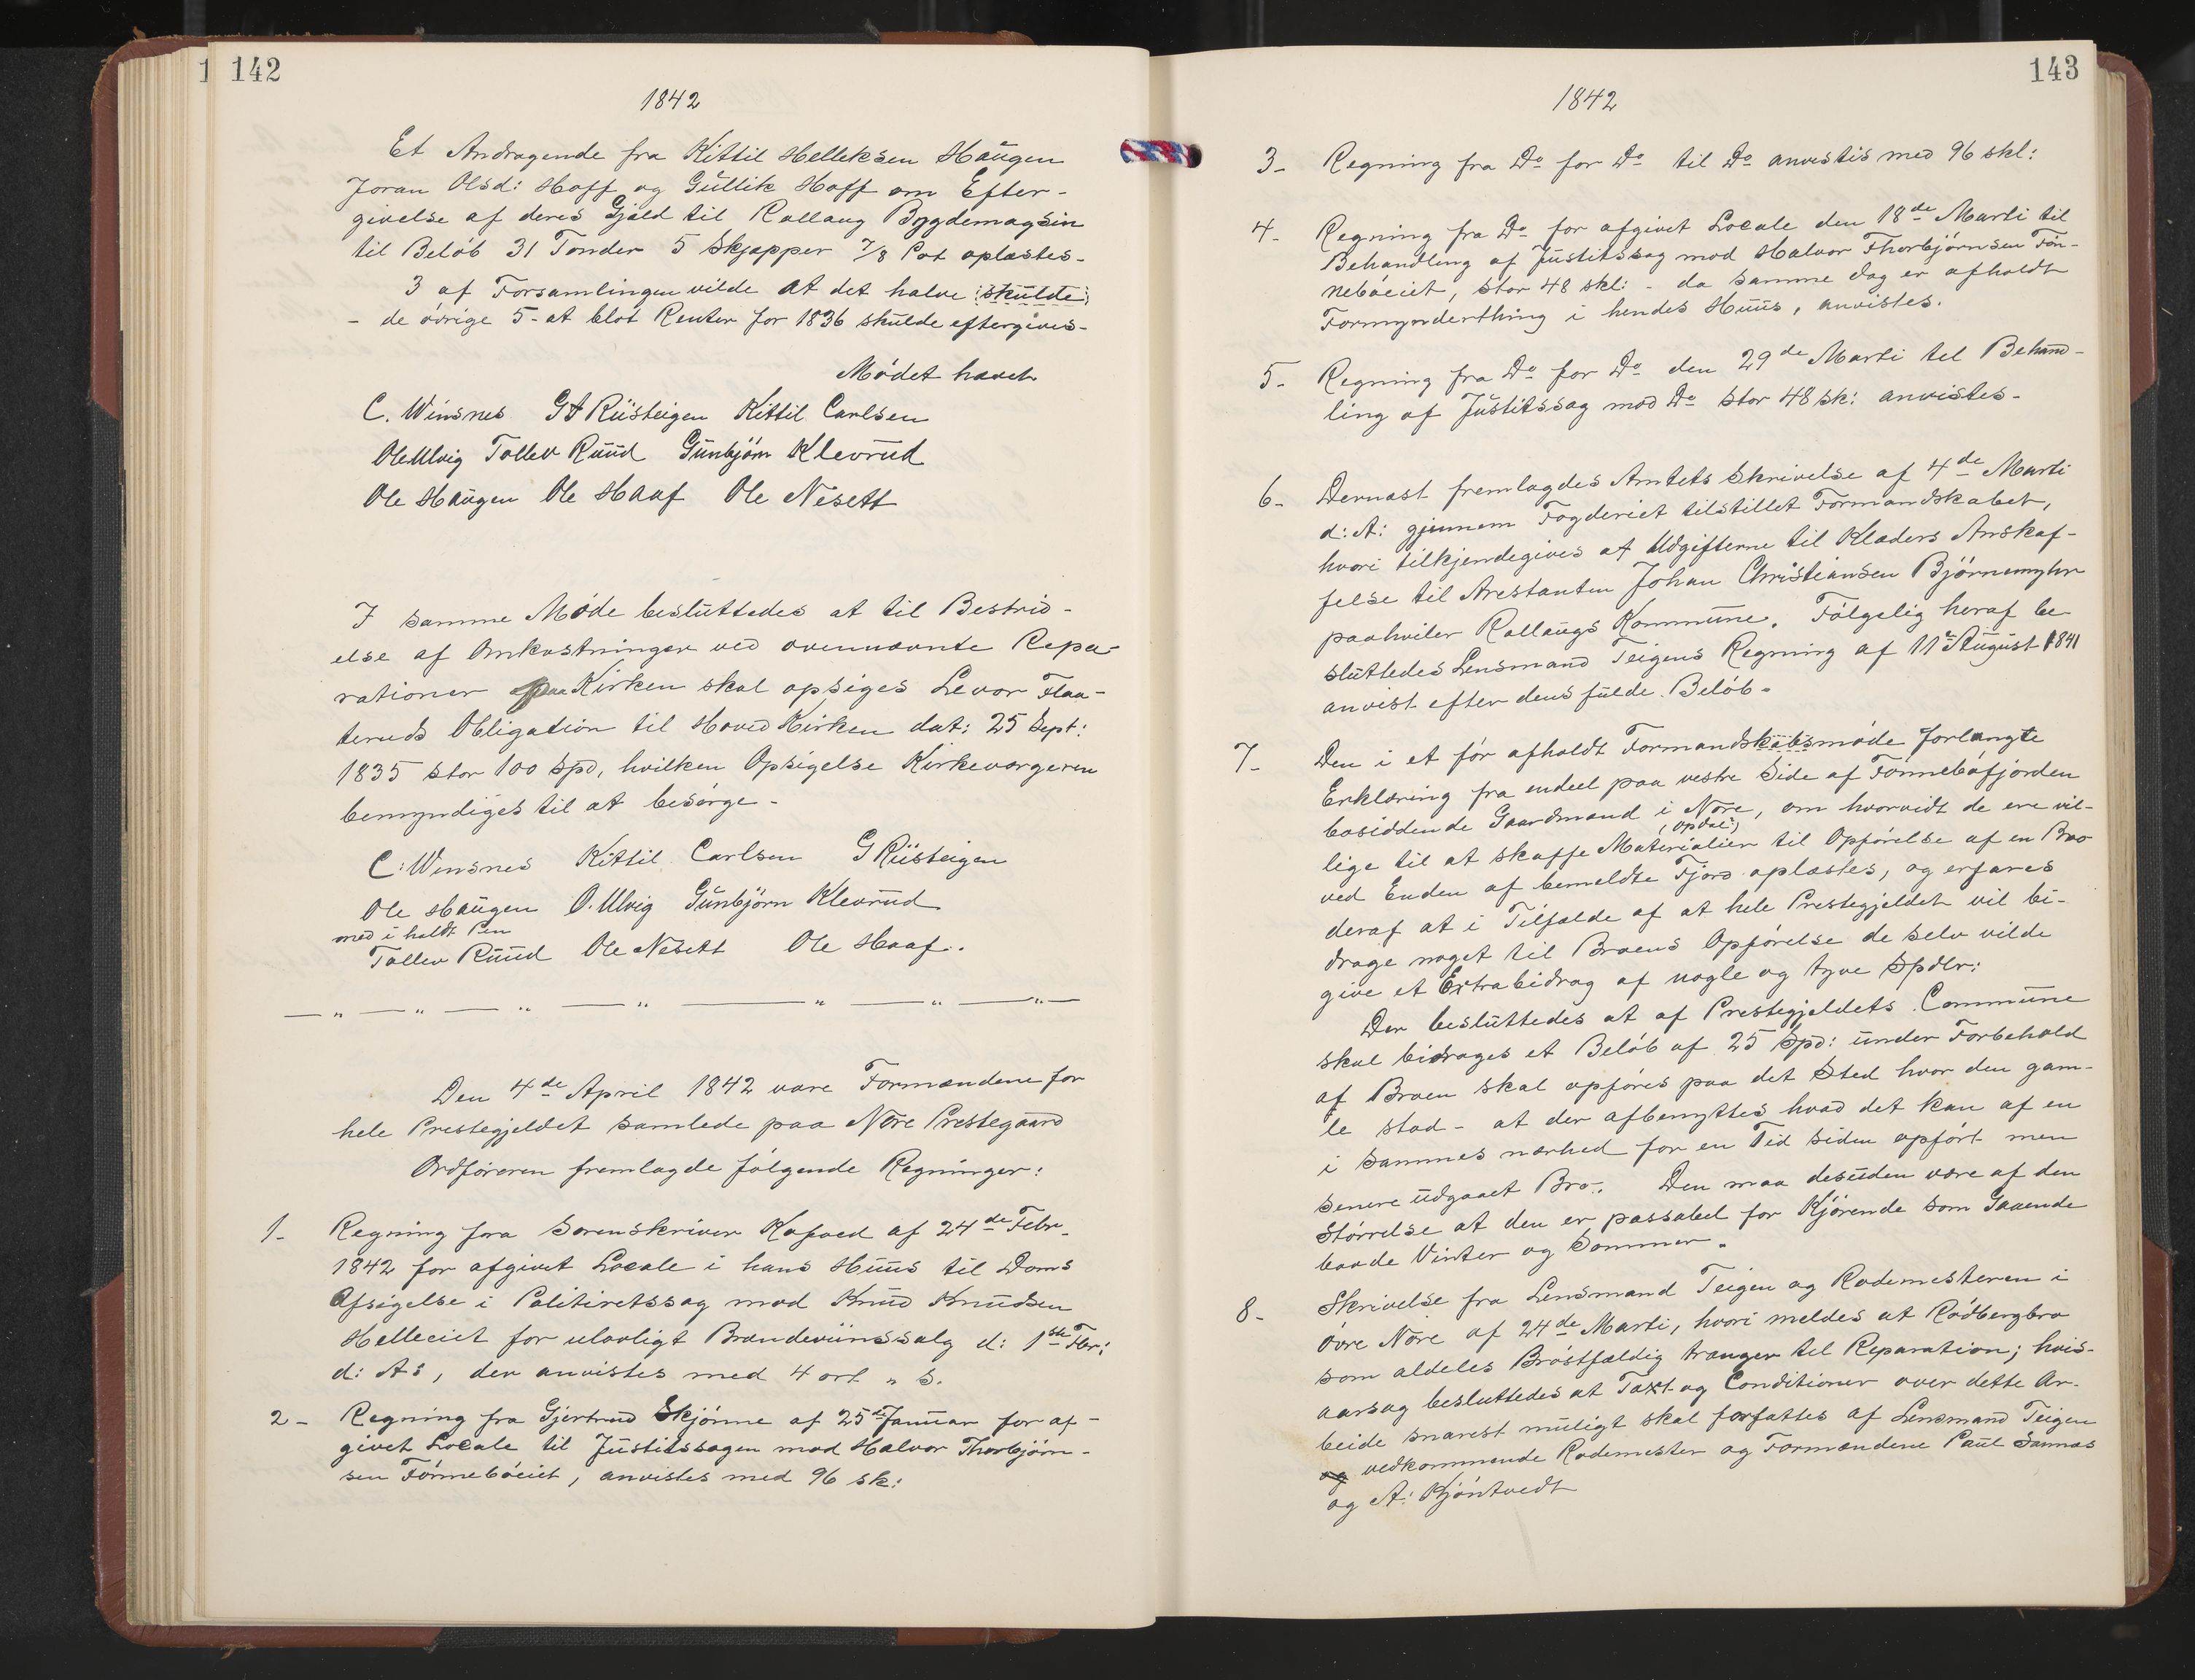 1 142
1842
Et Andragende fra Kittil Helleksen Haugen
Joran Olsd: Hoff og Gullik Hoff om Efter-
givelse af deres Gjæld til Rollaug Bygdemagsin
til Beløb 31 Tønder 5 Skjepper 7/8 Pot oplæstes-
3 af Forsamlingen vilde at det halve (:skulde:)
- de øvrige 5- at blot Renter for 1836 skulde eftergives-
Mødet hævet
C. Winsnes G A Rüsteigen Kittil Carlsen
Ole Ulvig Tollev Ruud Gunbjørn Klevrud
Ole Haugen Ole Haaf Ole Nesett
I samme Møde besluttedes at til Bestrid-
else af Omkostninger ved ovennævnte Repa-
rationer paa Kirken skal opsiges Levor Flaa-
teruds Obligation til HovedKirken dat: 25 Sept:
1835 stor 100 Spd, hvilken Opsigelse Kirkeværgeren
bemyndiges til at besørge-
C: Winsnes Kittil Carlsen G Rüsteigen
Ole Haugen O. Ulvig Gunbjørn Klevrud
med i holdt Pen
Tollev Ruud Ole Nesett Ole Haaf.
— " — " — " — " — " — " — " —
Den 4de April 1842 vare Formændene for
hele Prestegjeldet samlede paa Nore Prestegaard
Ordføreren fremlagde følgende Regninger:
1- Regning fra Sorenskriver Kofoed af 24de Febr.
1842 for afgivet Locale i hans Huus til Doms
Afsigelse i Politiretssag mod Knud Knudsen
Helleeiet for ulovligt Brændeviinssalg d: 1ste Fbr:
d: A:, der anvistes med 4 ort " s.
2- Regning fra Gjertrud Skjønne af 25de Januar for af-
givet Locale til Justitssagen mod Halvor Thorbjørn-
sen Fønnebøeiet, anvistes med 96 sk:
143
1842
3- Regning fra Do for Do til Do anvistis med 96 skl:
4- Regning fra Do for afgivet Locale den 18de Marti til
Behandling af Justitssag mod Halvor Thorbjørnsen Føn-
nebøeiet, stor 48 skl: - da samme dag er afholdt
Formynderthing i hendes Huus, anvistes.
5- Regning fra Do for Do den 29de Marti til Behand-
ling af Justitssag mod Do stor 48 sk: anvistes-
6- Dernæst fremlagdes Amtets Skrivelse af 4de Marti
d: A: gjennem Fogderiet tilstillet Formandskabet,
hvori tilkjendegives at Udgifterne til Klæders Anskaf-
felse til Arestanten Johan Christiansen Bjørnemyhr
paahviler Rollaugs Kommune. Følgelig heraf be-
sluttedes Lensmand Teigens Regning af 11te August 1841
anvist efter dens fulde Beløb.
7- Den i et før afholdt Formandskabsmøde forlangte
Erklæring fra endeel paa vestre Side af Fønnebøfjorden
bosiddende Gaardmænd i Nore, om hvorvidt de ere vil-
(:Opdal:)
lige til at skaffe Materialier til Opførelse af en Bro
ved Enden af bemeldte Fjord oplæstes, og erfares
deraf at i Tilfælde af at hele Prestegjeldet vil bi-
drage noget til Broens Opførelse de selv vilde
give et Extrabidrag af nogle og tyve Spdlr:
Der besluttedes at af Prestegjeldets Commune
skal bidrages et Beløb af 25 Spd: under Forbehold
af Broen skal opføres paa det Sted hvor den gam-
le stod - at der afbenyttes hvad det kan af en
i sammes nærhed for en Tid siden opført men
senere udgaaet Bro. Den maa desuden være af den
Størrelse at den er passabel for Kjørende som Gaaende
baade Vinter og Sommer.
8- Skrivelse fra Lensmand Teigen og Rodemesteren i
Øvre Nore af 24de Marti, hvori meldes at Rødbergbro
som aldeles Brøstfældig trænger til Reparation; hvis-
aarsag besluttedes at Taxt og Conditioner over dette Ar-
beide snarest muligt skal forfattes af Lensmand Teigen
og vedkommende Rodemester og Formændene Paul Sannes
og A: Kjøntvedt